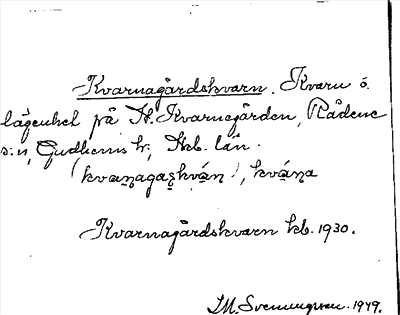 Kvarnagårdskvarn. Kvarn o.
lägenhet på St. Kvarnegården, Rådene
s:n, Gudhems hd, Skb. län.
(kvarnagaskván), kvána
Kvarnagårdskvarn kb. 1930.
S.M. Svenungsson. 1949.